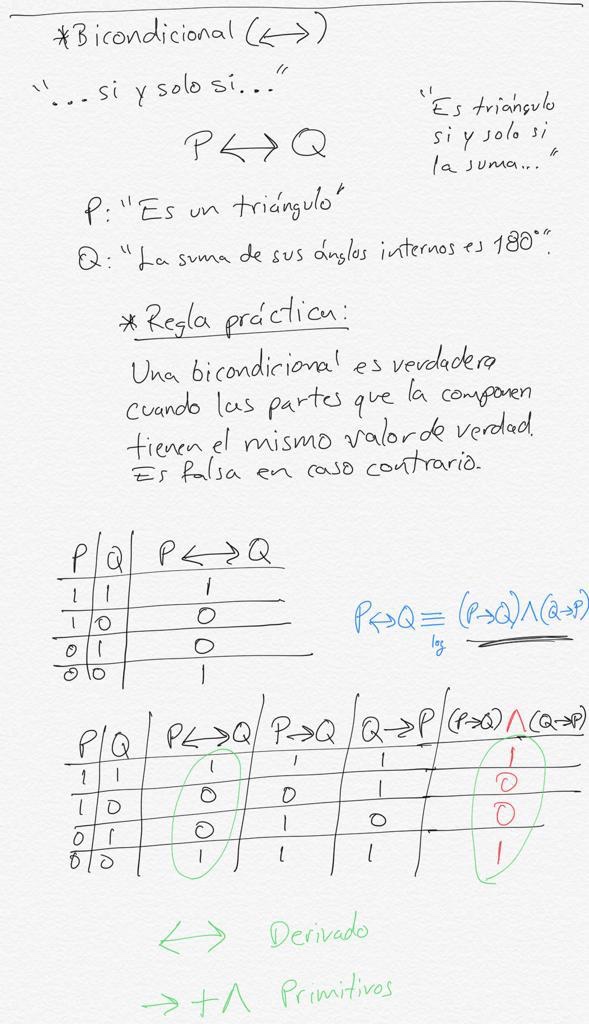 *Bicondicional (↔)
"...si y solo si..."
"Es triángulo
si y solo si
la suma..."
P ↔ Q
P: "Es un triángulo"
Q: "La suma de sus ánglos internos es 180°".
*Regla práctica:
Una bicondicional es verdadera
cuando las partes que la componen
tienen el mismo valor de verdad.
Es falsa en caso contrario.
P | Q | P ↔ Q
1 | 1 | 1
1 | 0 | 0
0 | 1 | 0
0 | 0 | 1
P↔Q ≡ (P→Q)∧(Q→P)
log
P | Q | P↔Q | P→Q | Q→P | (P→Q) ∧ (Q→P)
1 | 1 | 1 | 1 | 1 | 1
1 | 0 | 0 | 0 | 1 | 0
0 | 1 | 0 | 1 | 0 | 0
0 | 0 | 1 | 1 | 1 | 1
↔ Derivado
→ + ∧ Primitivos